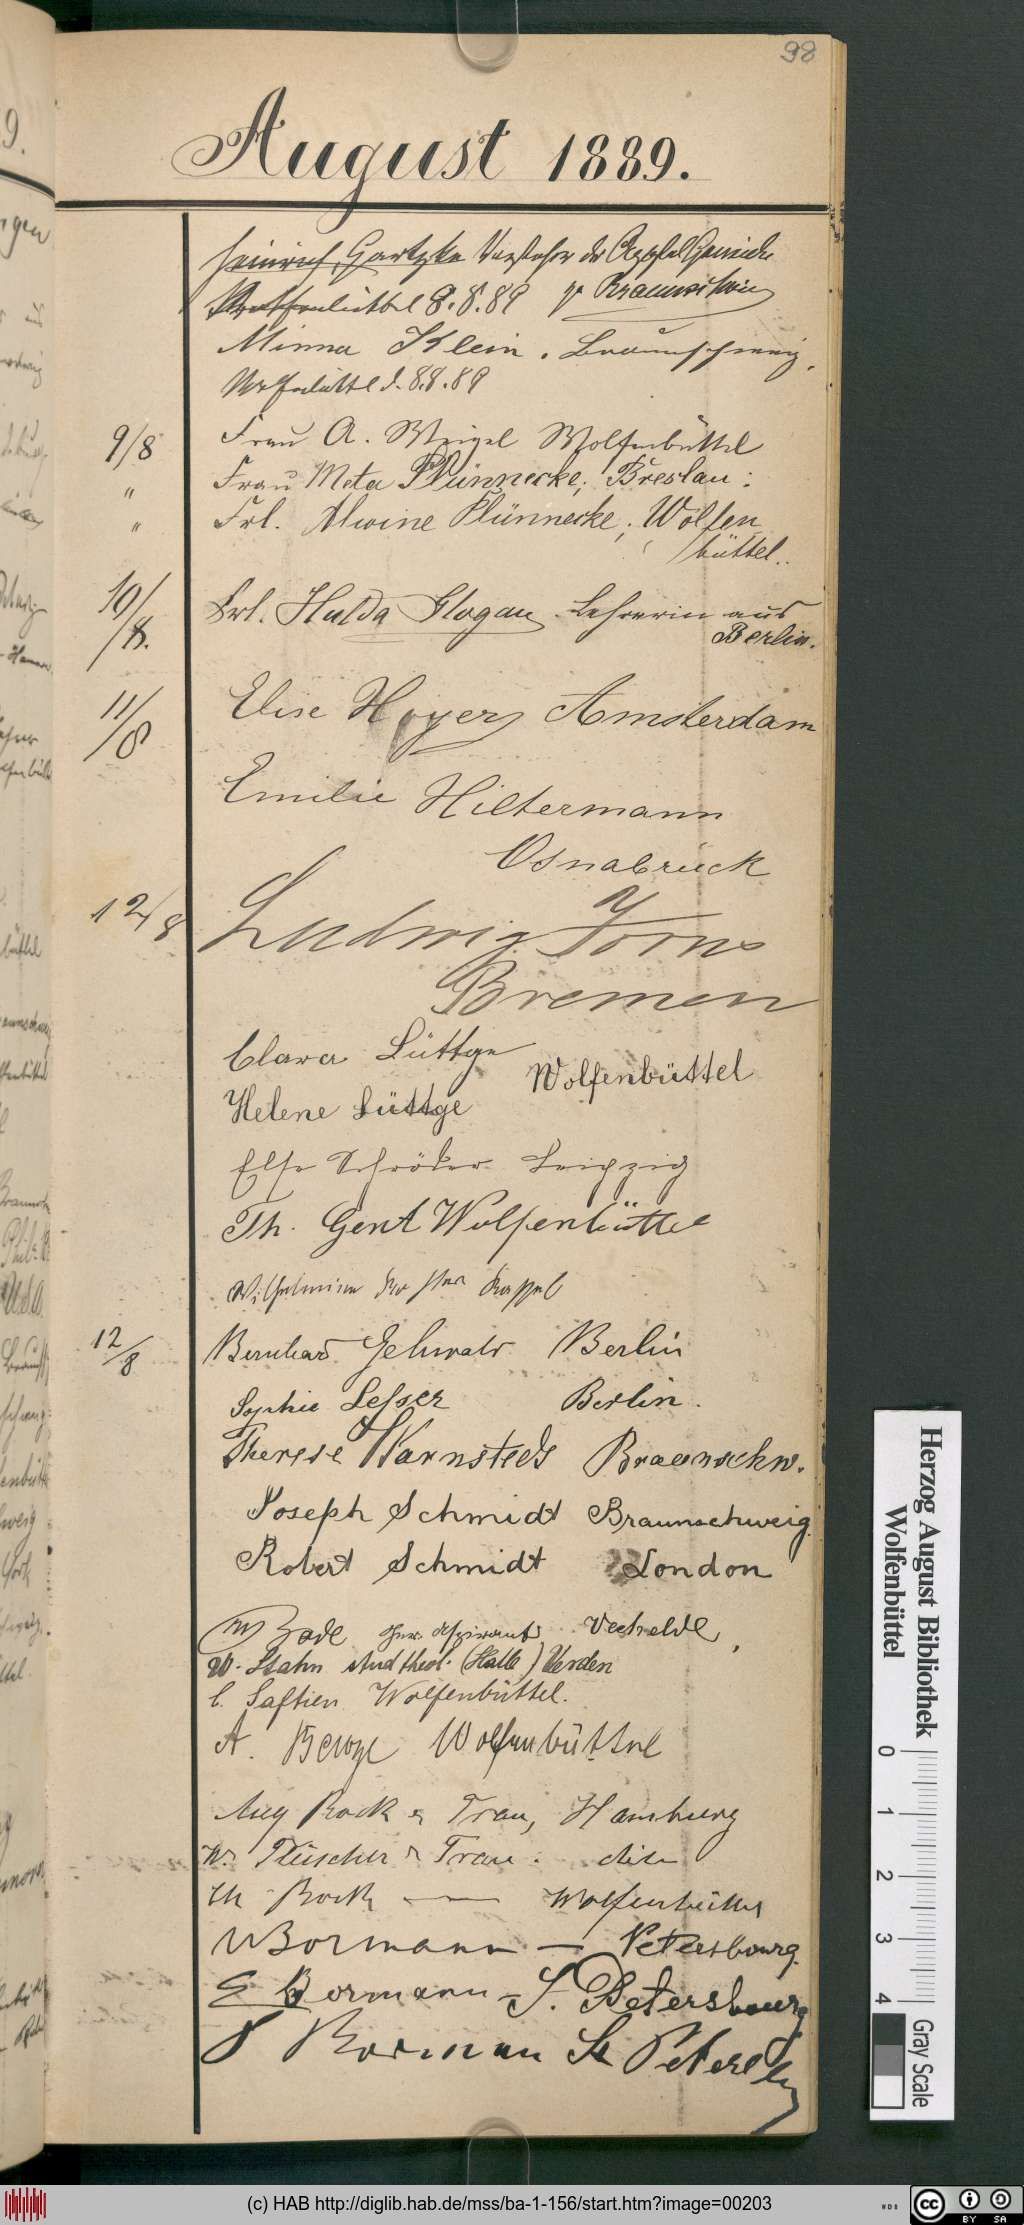 98
August 1889.
Heinrich Gartzke Vorsteher der Apostel Gemeinde
Wolfenbüttel 8.8.89 Braunschweig
Minna Klein. Braunschweig.
Wolfenbüttel d. 8.8.89
9/8 Frau A. Weigel Wolfenbüttel
" Frau Meta Plünnecke, Breslau:
" Frl. Alwine Plünnecke, Wolfen
büttel..
10/8. Frl. Hulda Glogau. Lehrerin aus
Berlin.
11/8 Elise Hoyer Amsterdam
Emilie Hiltermann
Osnabrück
12/8 Ludwig Yorns
Bremen
Clara Lüttge
Wolfenbüttel
Helene Lüttge
Else Schröder Leipzig
Th. Gent Wolfenbüttel
Wilhelmine Kassel
12/8 Bernhard Berlin
Sophie Lesser Berlin.
Therese Warnstedt Braunschw.
Joseph Schmidt Braunschweig.
Robert Schmidt London
Bode Vechelde,
W. Stahn stud theol. (Halle) Verden
C. Saftien Wolfenbüttel.
A. Wolfenbüttel
Aug Bock & Frau, Hamburg
W. Plüscher & Frau. dito
Th Bock — Wolfenbüttel
Bormann — Petersbourg.
E Bormann - S. Petersbourg
Borman St Petersb
Herzog August Bibliothek
Wolfenbüttel
0 1 2 3 4
Gray Scale
(c) HAB http://diglib.hab.de/mss/ba-1-156/start.htm?image=00203
WDB
cc BY SA